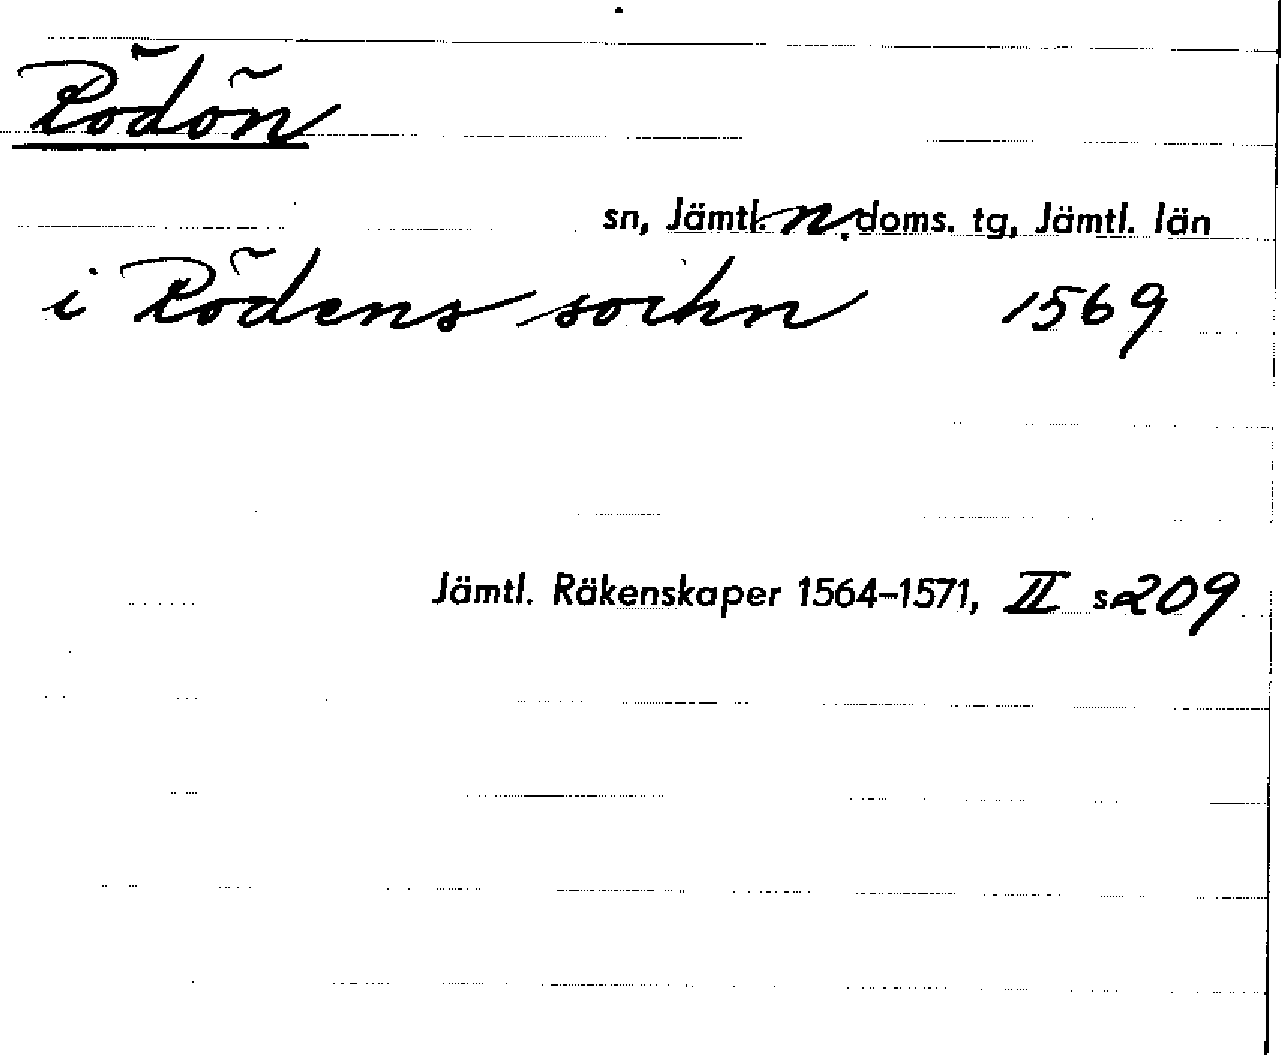 Rödön
sn, Jämtl. n. doms. tg, Jämtl. län
i Rödens sockn 1569
Jämtl. Räkenskaper 1564–1571, II s 209